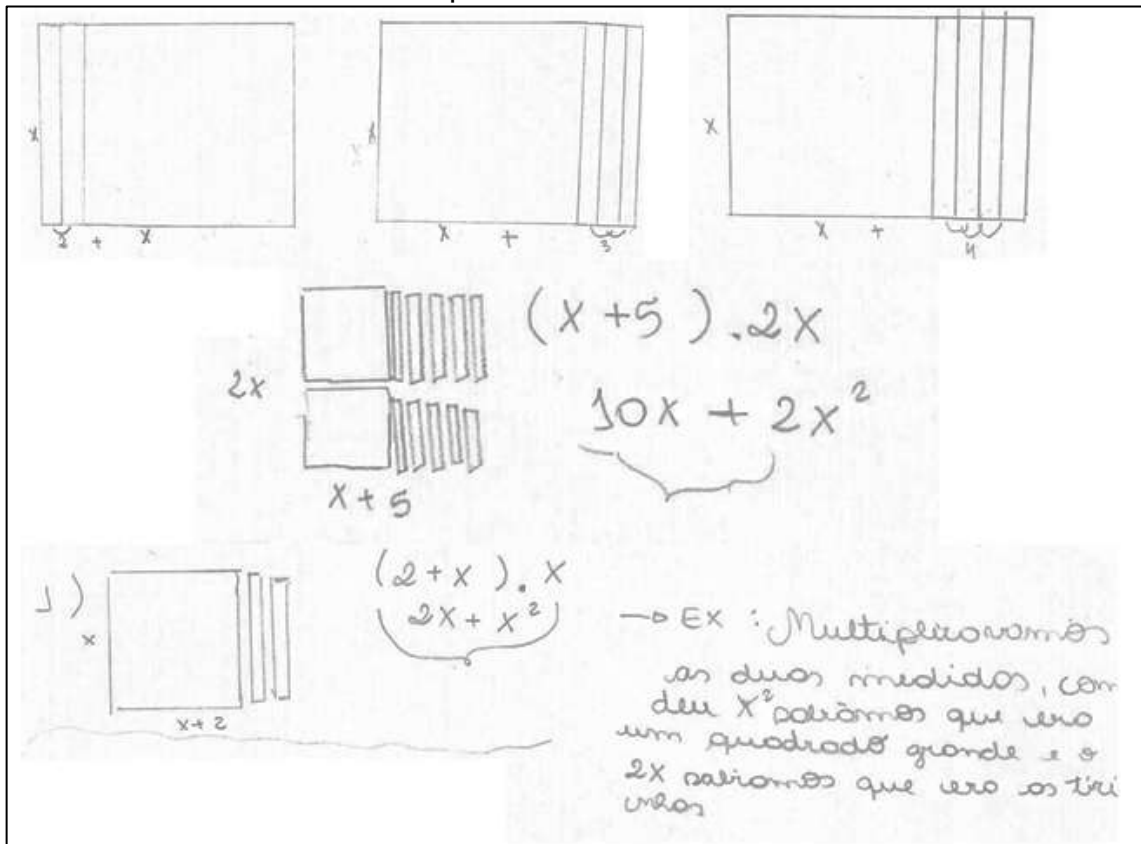 x
2 + x
x
x + 3
x
x + 4
2x
x + 5
(x + 5) . 2x
10x + 2x²
1)
x
x + 2
(2 + x) . x
2x + x²
→ Ex : Multiplicavamos
as duas medidas, com
deu x² sabiamos que era
um quadrado grande e o
2x sabiamos que era as tiri
nhas